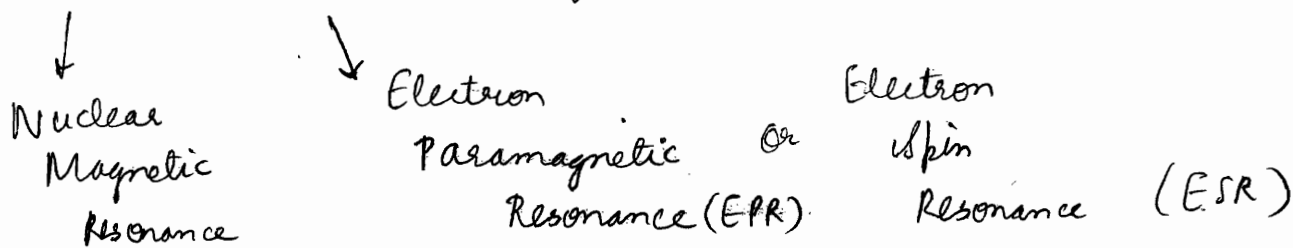 Nuclear
Magnetic
Resonance
Electron
Paramagnetic
Resonance (EPR)
or
Electron
Spin
Resonance (ESR)